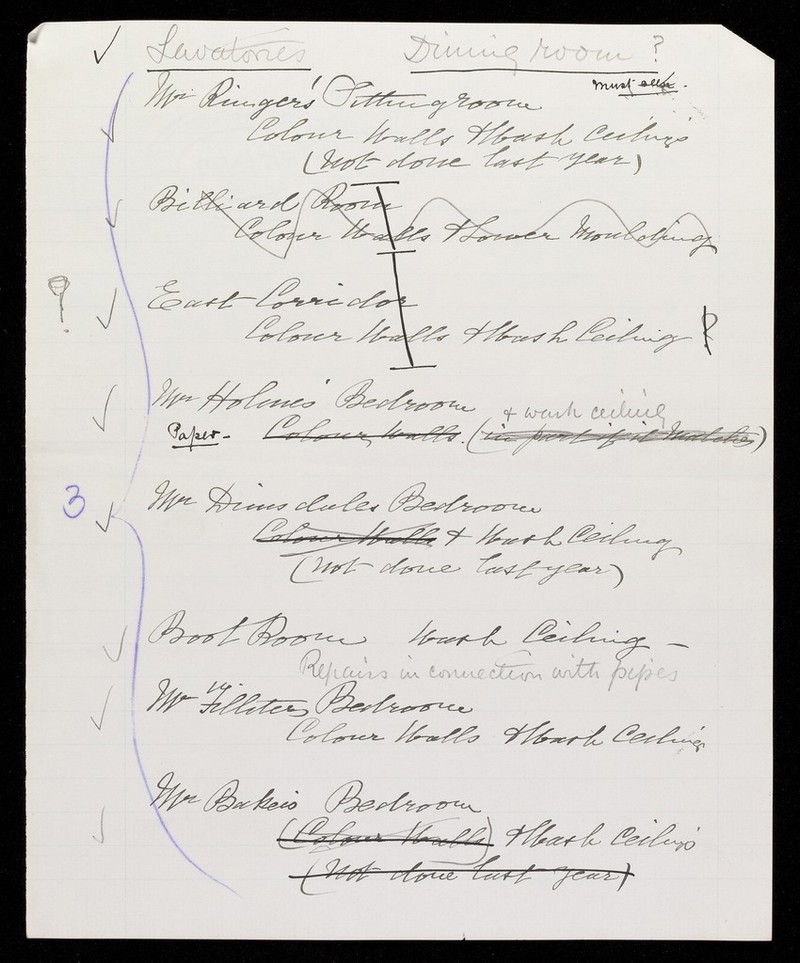 Lavatories Dining room ?
must alter.
Mr Ringer's Sittingroom
Colour Walls & Wash Ceiling
(Not done last year)
Billiard Room
Colour Walls & Lower Moulding
? East Corridor
Colour Walls & Wash Ceiling ?
Mr Holmes Bedroom
& wash ceiling
Paper - Colour Walls. (in part if it Matches)
3 Mr Dimsdales Bedroom
Colour Walls & Wash Ceiling
(Not done last year)
Boot Room Wash Ceiling -
Repairs in connection with pipes
Mr Filliters Bedroom
Colour Walls & Wash Ceiling
Mr Bakers Bedroom
(Colour Walls) & Wash Ceiling
(Not done last year)